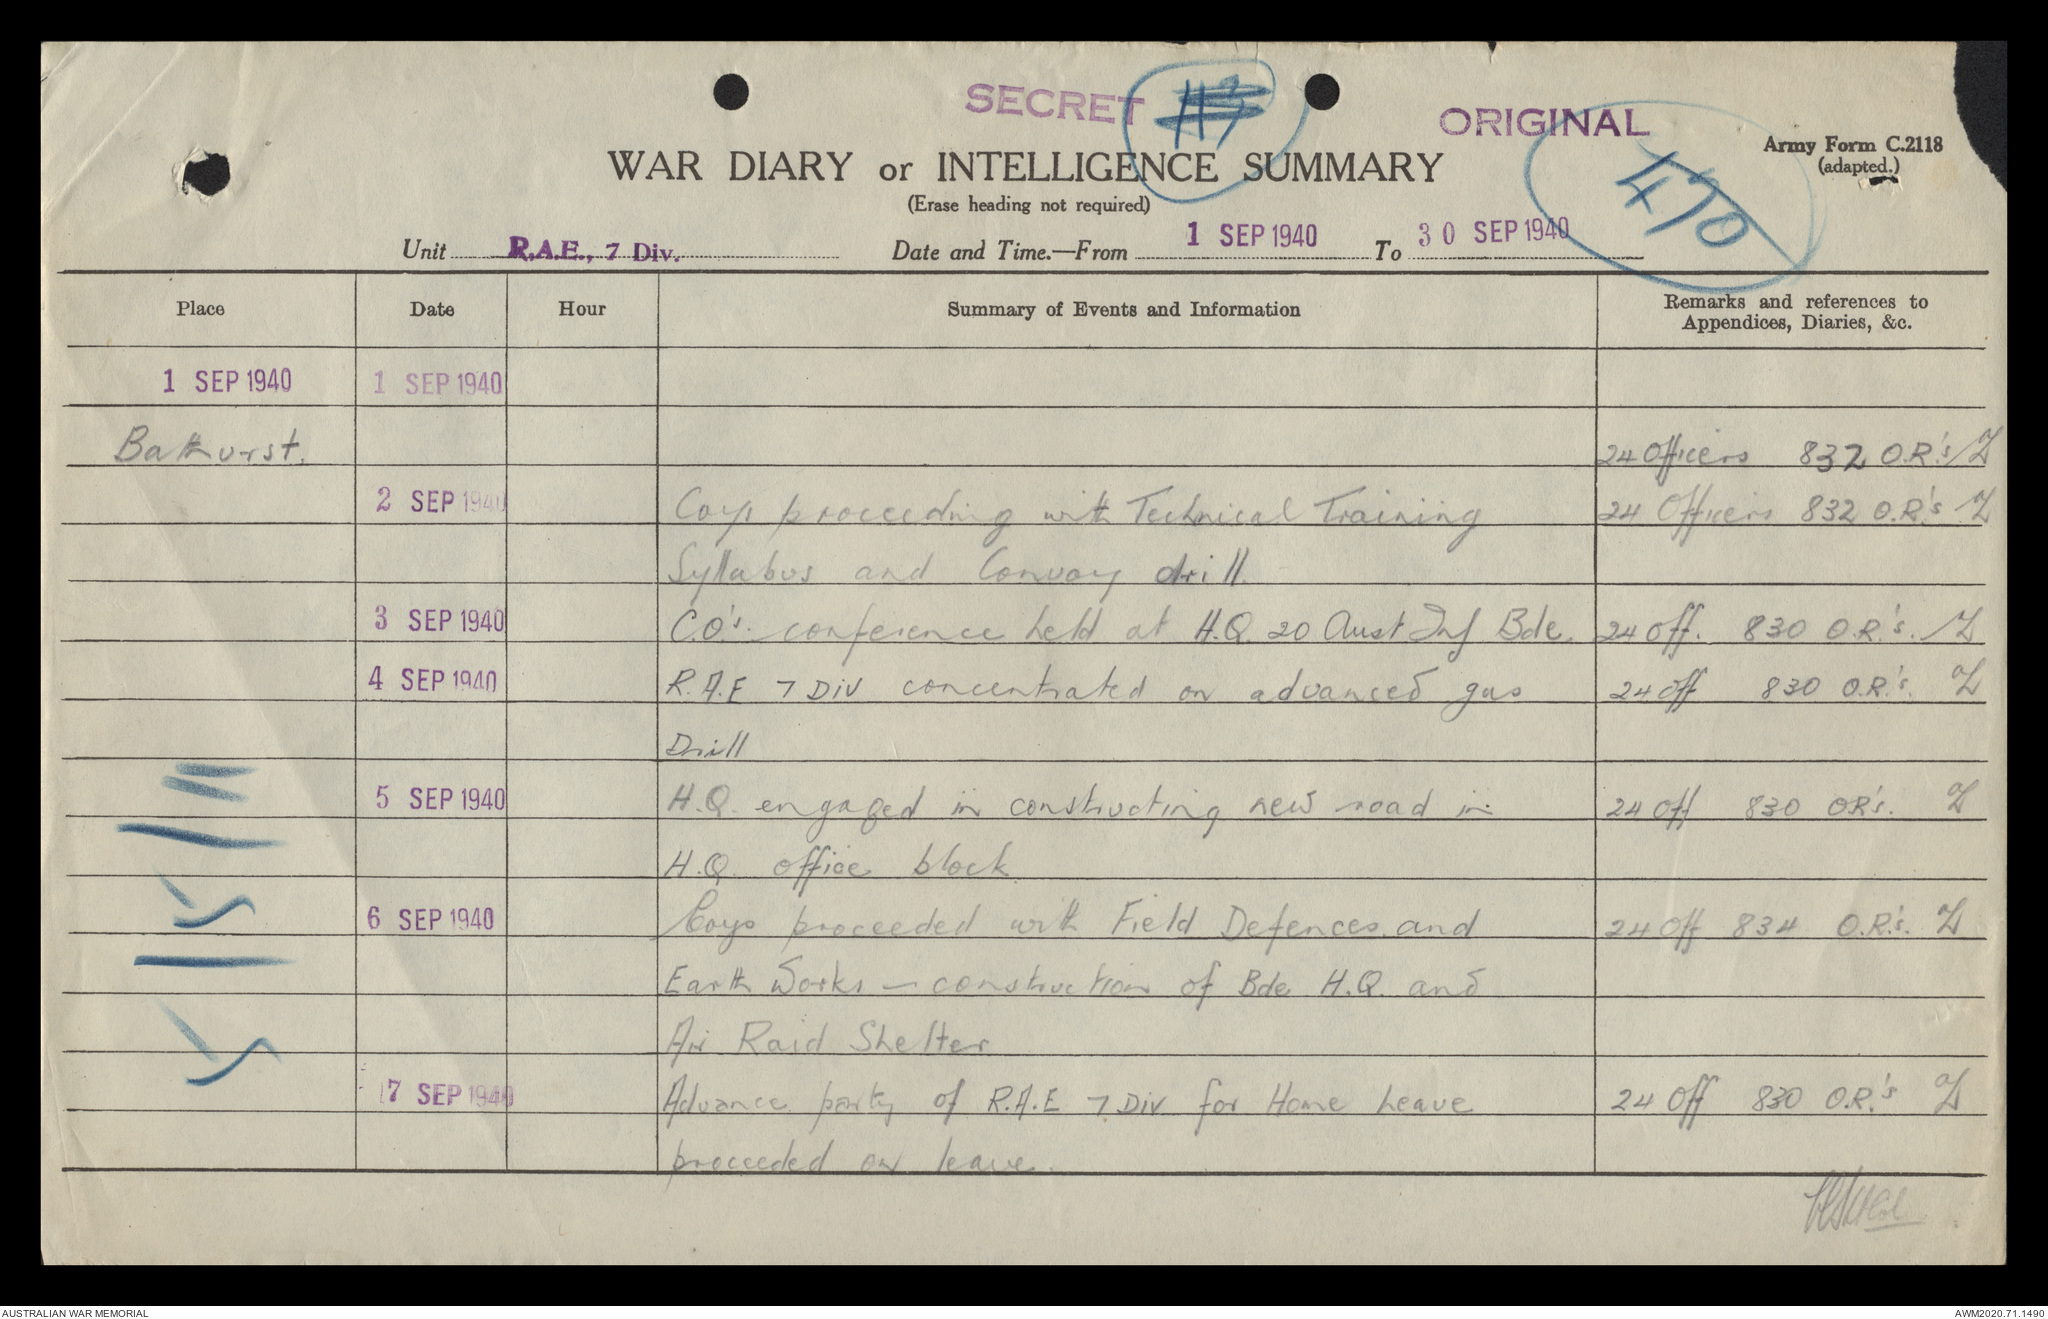 SECRET 113
ORIGINAL
470
Army Form C.2118
(adapted.)
WAR DIARY or INTELLIGENCE SUMMARY
(Erase heading not required)
Unit R.A.E., 7 Div. Date and Time.—From 1 SEP 1940 To 30 SEP 1940
Place Date Hour Summary of Events and Information Remarks and references to
Appendices, Diaries, &c.
1 SEP 1940 1 SEP 1940
Bathurst. 24 Officers 832 O.R's
2 SEP 1940 Coys proceeding with Technical Training 24 Officers 832 O.R's
Syllabus and Convoy drill.
3 SEP 1940 C.O's. conference held at H.Q. 20 Aust Inf Bde. 24 Off. 830 O.R's.
4 SEP 1940 R.A.E 7 Div concentrated on advanced gas 24 Off 830 O.R's.
Drill
5 SEP 1940 H.Q. engaged in constructing new road in 24 Off 830 OR's.
H.Q. office block
6 SEP 1940 Coys proceeded with Field Defences and 24 Off 834 O.R's.
Earth Works — construction of Bde H.Q. and
Air Raid Shelter
7 SEP 1940 Advance party of R.A.E 7 Div for Home Leave 24 Off 830 O.R's
proceeded on leave.
AUSTRALIAN WAR MEMORIAL AWM2020.71.1490